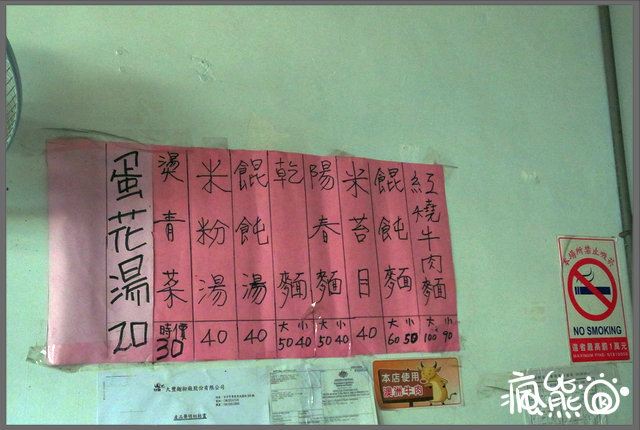 紅燒牛肉麵 大100 小90
餛飩麵 大60 小50
米苔目 40
陽春麵 大50 小40
乾麵 大50 小40
餛飩湯 40
米粉湯 40
燙青菜 時價 30
蛋花湯 20
本場所禁止吸菸
NO SMOKING
違者最高罰1萬元
大豐麵粉廠股份有限公司
本店使用
澳洲牛肉
瘋熊